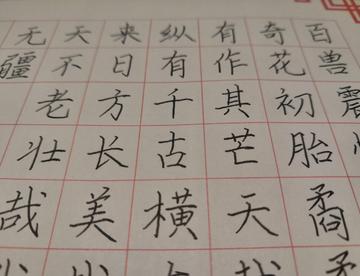 百兽震
奇花初胎矞
有作其芒天
纵有千古横
来日方长美
天不老壮哉
无疆